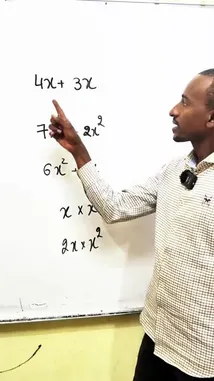 4x + 3x
7 2x²
6x² +
x × x
2x × x²